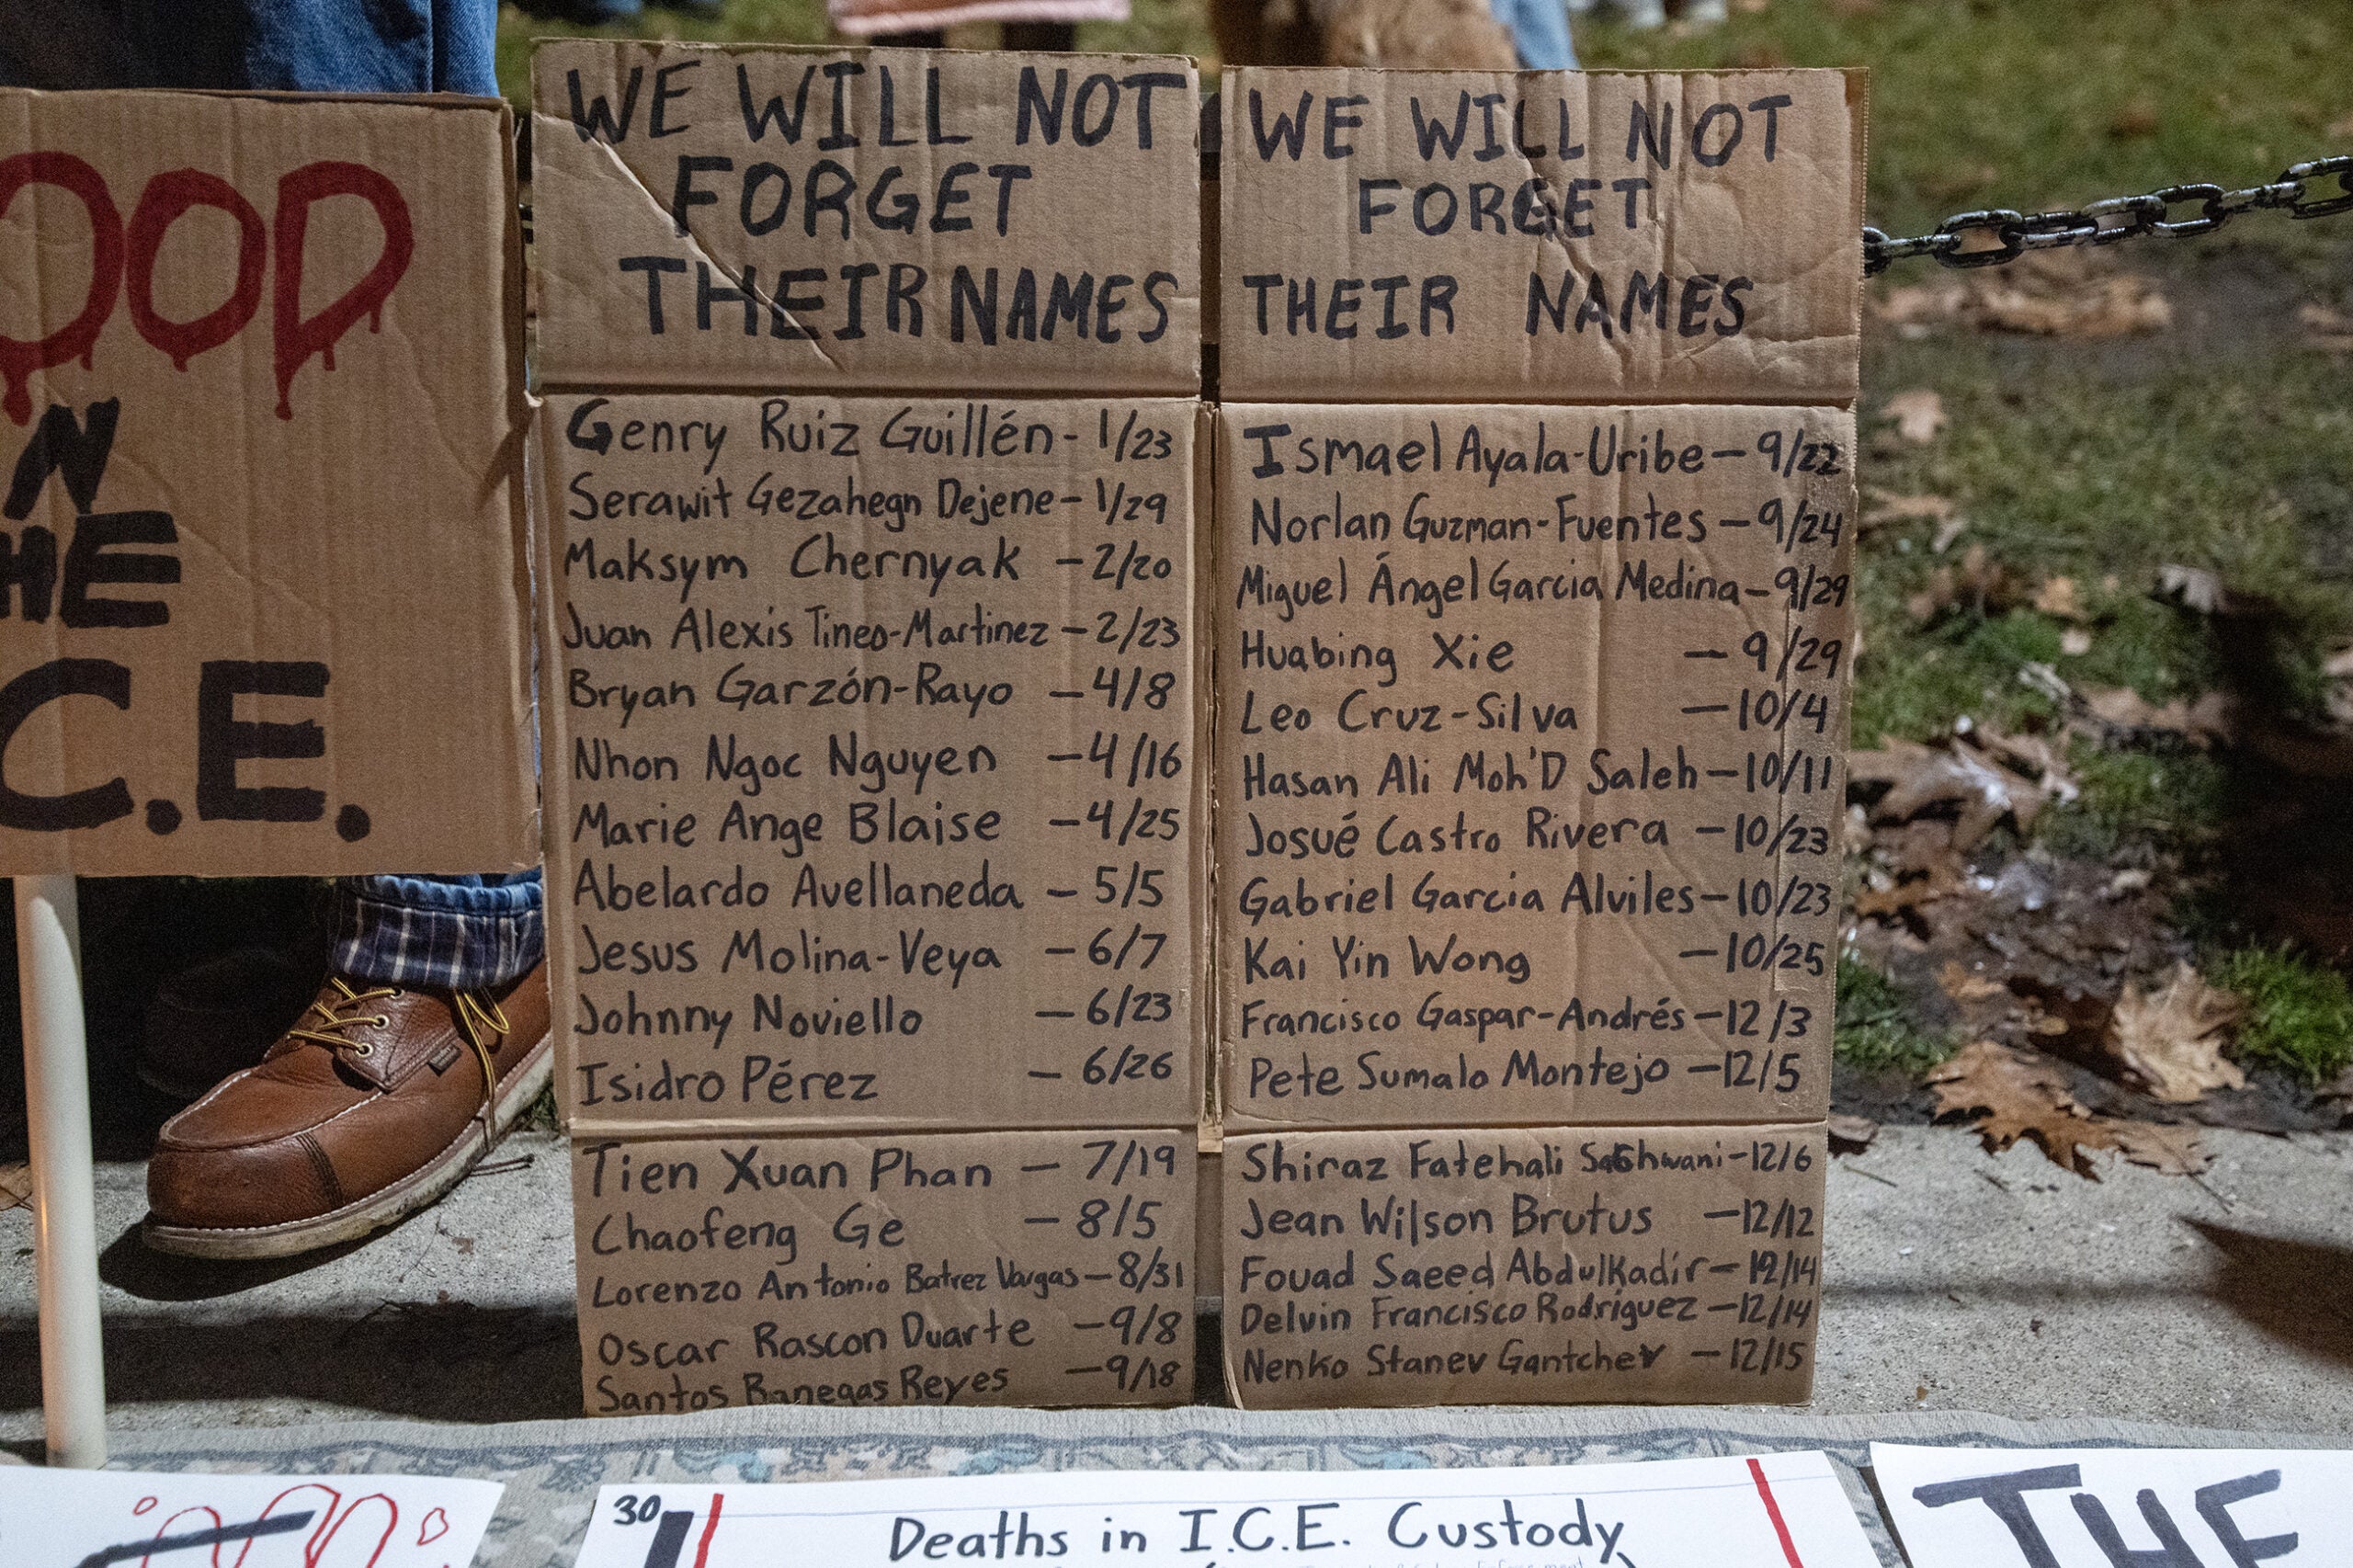 OOD
N
HE
C.E.
WE WILL NOT
FORGET
THEIR NAMES
Genry Ruiz Guillén - 1/23
Serawit Gezahegn Dejene - 1/29
Maksym Chernyak - 2/20
Juan Alexis Tineo-Martinez - 2/23
Bryan Garzón-Rayo - 4/8
Nhon Ngoc Nguyen - 4/16
Marie Ange Blaise - 4/25
Abelardo Avellaneda - 5/5
Jesus Molina-Veya - 6/7
Johnny Noviello - 6/23
Isidro Pérez - 6/26
Tien Xuan Phan - 7/19
Chaofeng Ge - 8/5
Lorenzo Antonio Batrez Vargas - 8/31
Oscar Rascon Duarte - 9/8
Santos Banegas Reyes - 9/18
WE WILL NOT
FORGET
THEIR NAMES
Ismael Ayala-Uribe - 9/22
Norlan Guzman-Fuentes - 9/24
Miguel Ángel Garcia Medina - 9/29
Huabing Xie - 9/29
Leo Cruz-Silva - 10/4
Hasan Ali Moh'D Saleh - 10/11
Josué Castro Rivera - 10/23
Gabriel Garcia Alviles - 10/23
Kai Yin Wong - 10/25
Francisco Gaspar-Andrés - 12/3
Pete Sumalo Montejo - 12/5
Shiraz Fatehali - 12/6
Jean Wilson Brutus - 12/12
Fouad Saeed Abdulkadir - 12/14
Delvin Francisco Rodriguez - 12/14
Nenko Stanev Gantchev - 12/15
30
Deaths in I.C.E. Custody
THE